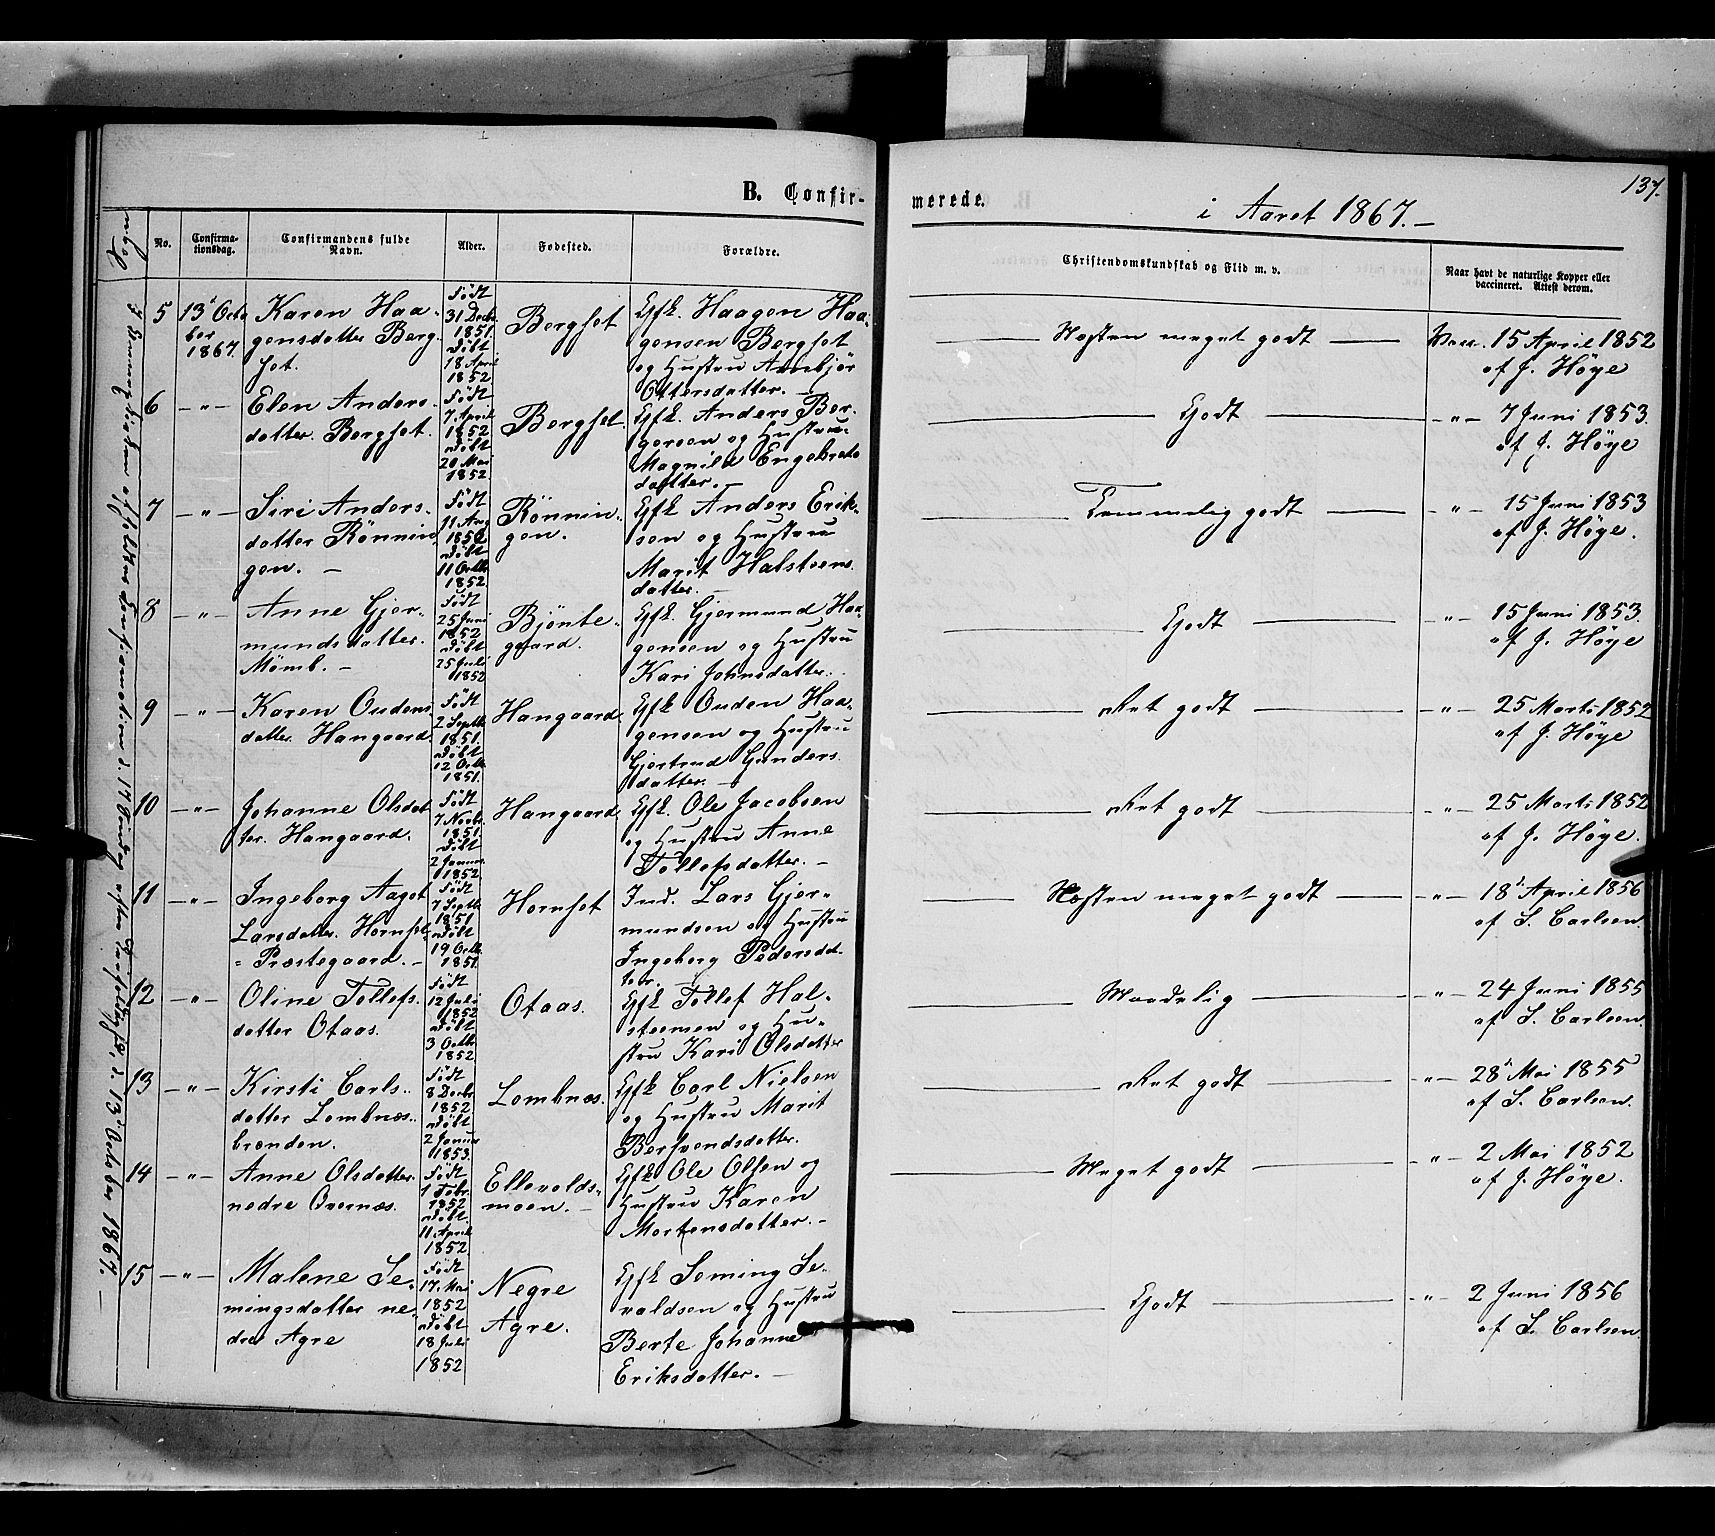 137.
B. Confir-
merede.
i Aaret 1867.-
No.
Confirma-
tionsdag.
Confirmandens fulde
Navn.
Alder.
Fødested.
Forældre.
Christendomskundskab og Flid m. v.
Naar havt de naturlige Kopper eller
vaccineret. Attest derom.
5
13' Octo
ber
1867.
Karen Haa-
gensdatter Berg-
set.
Född
31 Decbr
1851.
Döbt
18 April
1852.
Bergset
Gfk. Haagen Haa-
gensen Bergset
og Hustru Annbjör
Ottersdatter.
Næsten meget godt
Vac. 15 April 1852
af J. Höye
6
-"-
Elen Anders-
datter. Bergset.
Född
7 April
1852
Döbt
20 Mai
1852
Bergset.
Gfk. Anders Ber-
gersen og Hustru
Magnild Engebrets
datter. -
Godt
-"- 7 Juni 1853.
af J. Höye
7
-"-
Siri Anders-
datter Rönnin-
gen. -
Född
11 Aug
1852
Döbt
11 Octbr
1852.
Rönnin-
gen.
Gfk Anders Erik-
sen og Hustru
Marit Halsteens
datter. -
Temmelig godt
-"- 15 Juni 1853
af J. Höye.
8
-"-
Anne Gjer-
mundsdatter.
Mömb. -
Född
25 Juni
1852
Döbt
25 Juli
1852
Bjönte-
gaard.
Gfk. Gjermund Haa-
gensen og Hustru
Kari Johnsdatter.
Godt
-"- 15 Juni 1853.
af J. Höye
9
-"-
Karen Oudens
datter. Hangaard.
Född
2 Septb.
1851.
Döbt
12 Octb.
1851.
Hangaard.
Gfk Ouden Haa-
gensen og Hustru
Gjertrud Gunders
datter. -
Ret godt
-"- 25 Marts 1852
af J. Höye
10
-"-
Johanne Olsdat
ter. Hangaard.
Född
7 Novbr.
1851.
Döbt
2 Januar
1852
Hangaard.
Gfk. Ole Jacobsen
og Hustru Anne
Tollefsdatter. -
Ret godt
-"- 25 Marts 1852
af J. Höye.
11
-"-
Ingeborg Aagot
Larsdatter. Hornset-
- Præstegaard. -
Född
7 Septb.
1851
Döbt
19 Octb.
1851.
Hornset
Ind. Lars Gjer-
mundsen og Hustru
Ingeborg Pedersdat-
ter.
Næsten meget godt
-"- 18' April 1856
af S. Carlsen.
12
-"-
Oline Tollefs
datter Otaas.
Född
12 Juli
1852
Döbt
3 Octbr.
1852
Otaas.
Gfk Tollef Hal-
steensen og Hu-
stru Kari Olsdatter
Maadelig
-"- 24 Juni 1855
af S. Carlsen.
13
-"-
Kirsti Carls-
datter Lombnæs-
brænden.
Född
8 Decbr
1852
Döbt
2 Januar
1853.
Lombnæs.
Gfk Carl Nielsen
og Hustru Marit
Bersvendsdatter.
Ret godt
-"- 28' Mai 1855
af S. Carlsen.
14
-"-
Anne Olsdatter
nedre Övernæs.
Född
1 Febr.
1852
Döbt
11 April
1852.
Ellevolds-
moen. -
Gfk Ole Olsen og
Hustru Karen
Mortensdatter. -
Meget godt
-"- 2 Mai 1852
af J. Höye.
15
-"-
Malene Se-
mingsdatter ne-
dre Agre
Född
17 Mai
1852
Döbt
18 Juli
1852
Negre
Agre.
Gfk Seming Se-
valdsen og Hustru
Berte Johanne
Eriksdatter. -
Godt
-"- 2 Juni 1856
af S. Carlsen.